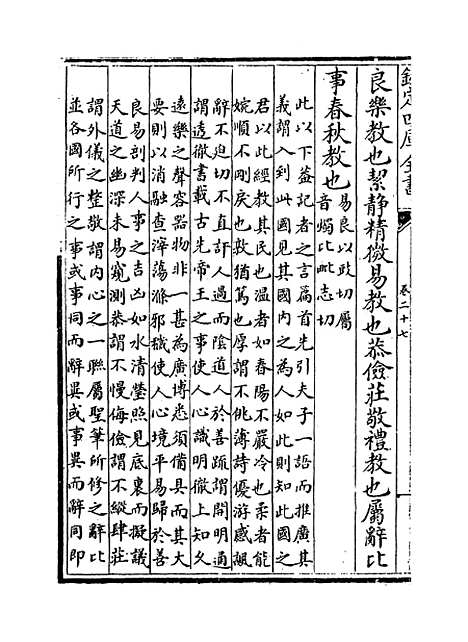 欽定四庫全書
卷二十七
良樂教也絜静精微易教也恭儉莊敬禮教也屬辭比
事春秋教也易良以豉切屬
音燭比毗志切
此以下葢記者之言篇首先引夫子一語而推廣其
義謂入到此國見其國内之為人如此則知此國之
君以此經教其民也溫者如春陽不嚴冷也柔者能
婉順不剛戾也敦猶篤也厚謂不佻薄詩優游感諷
辭不迫切不直訐人過而隂道人於善疏謂開明通
謂透徹書載古先帝王之事使人心識明徹上知久
遠樂之聲容器物非一甚為廣博悉須備具而其大
要則以消融查滓蕩滌邪穢使人心境平易歸於善
良易剖判人事之吉凶如水清瑩照見底裏而擬議
天道之幽深未易窺測恭謂不慢侮儉謂不縱肆莊
謂外儀之整敬謂内心之一聯屬聖筆所修之辭比
並各國所行之事或事同而辭異或事異而辭同即